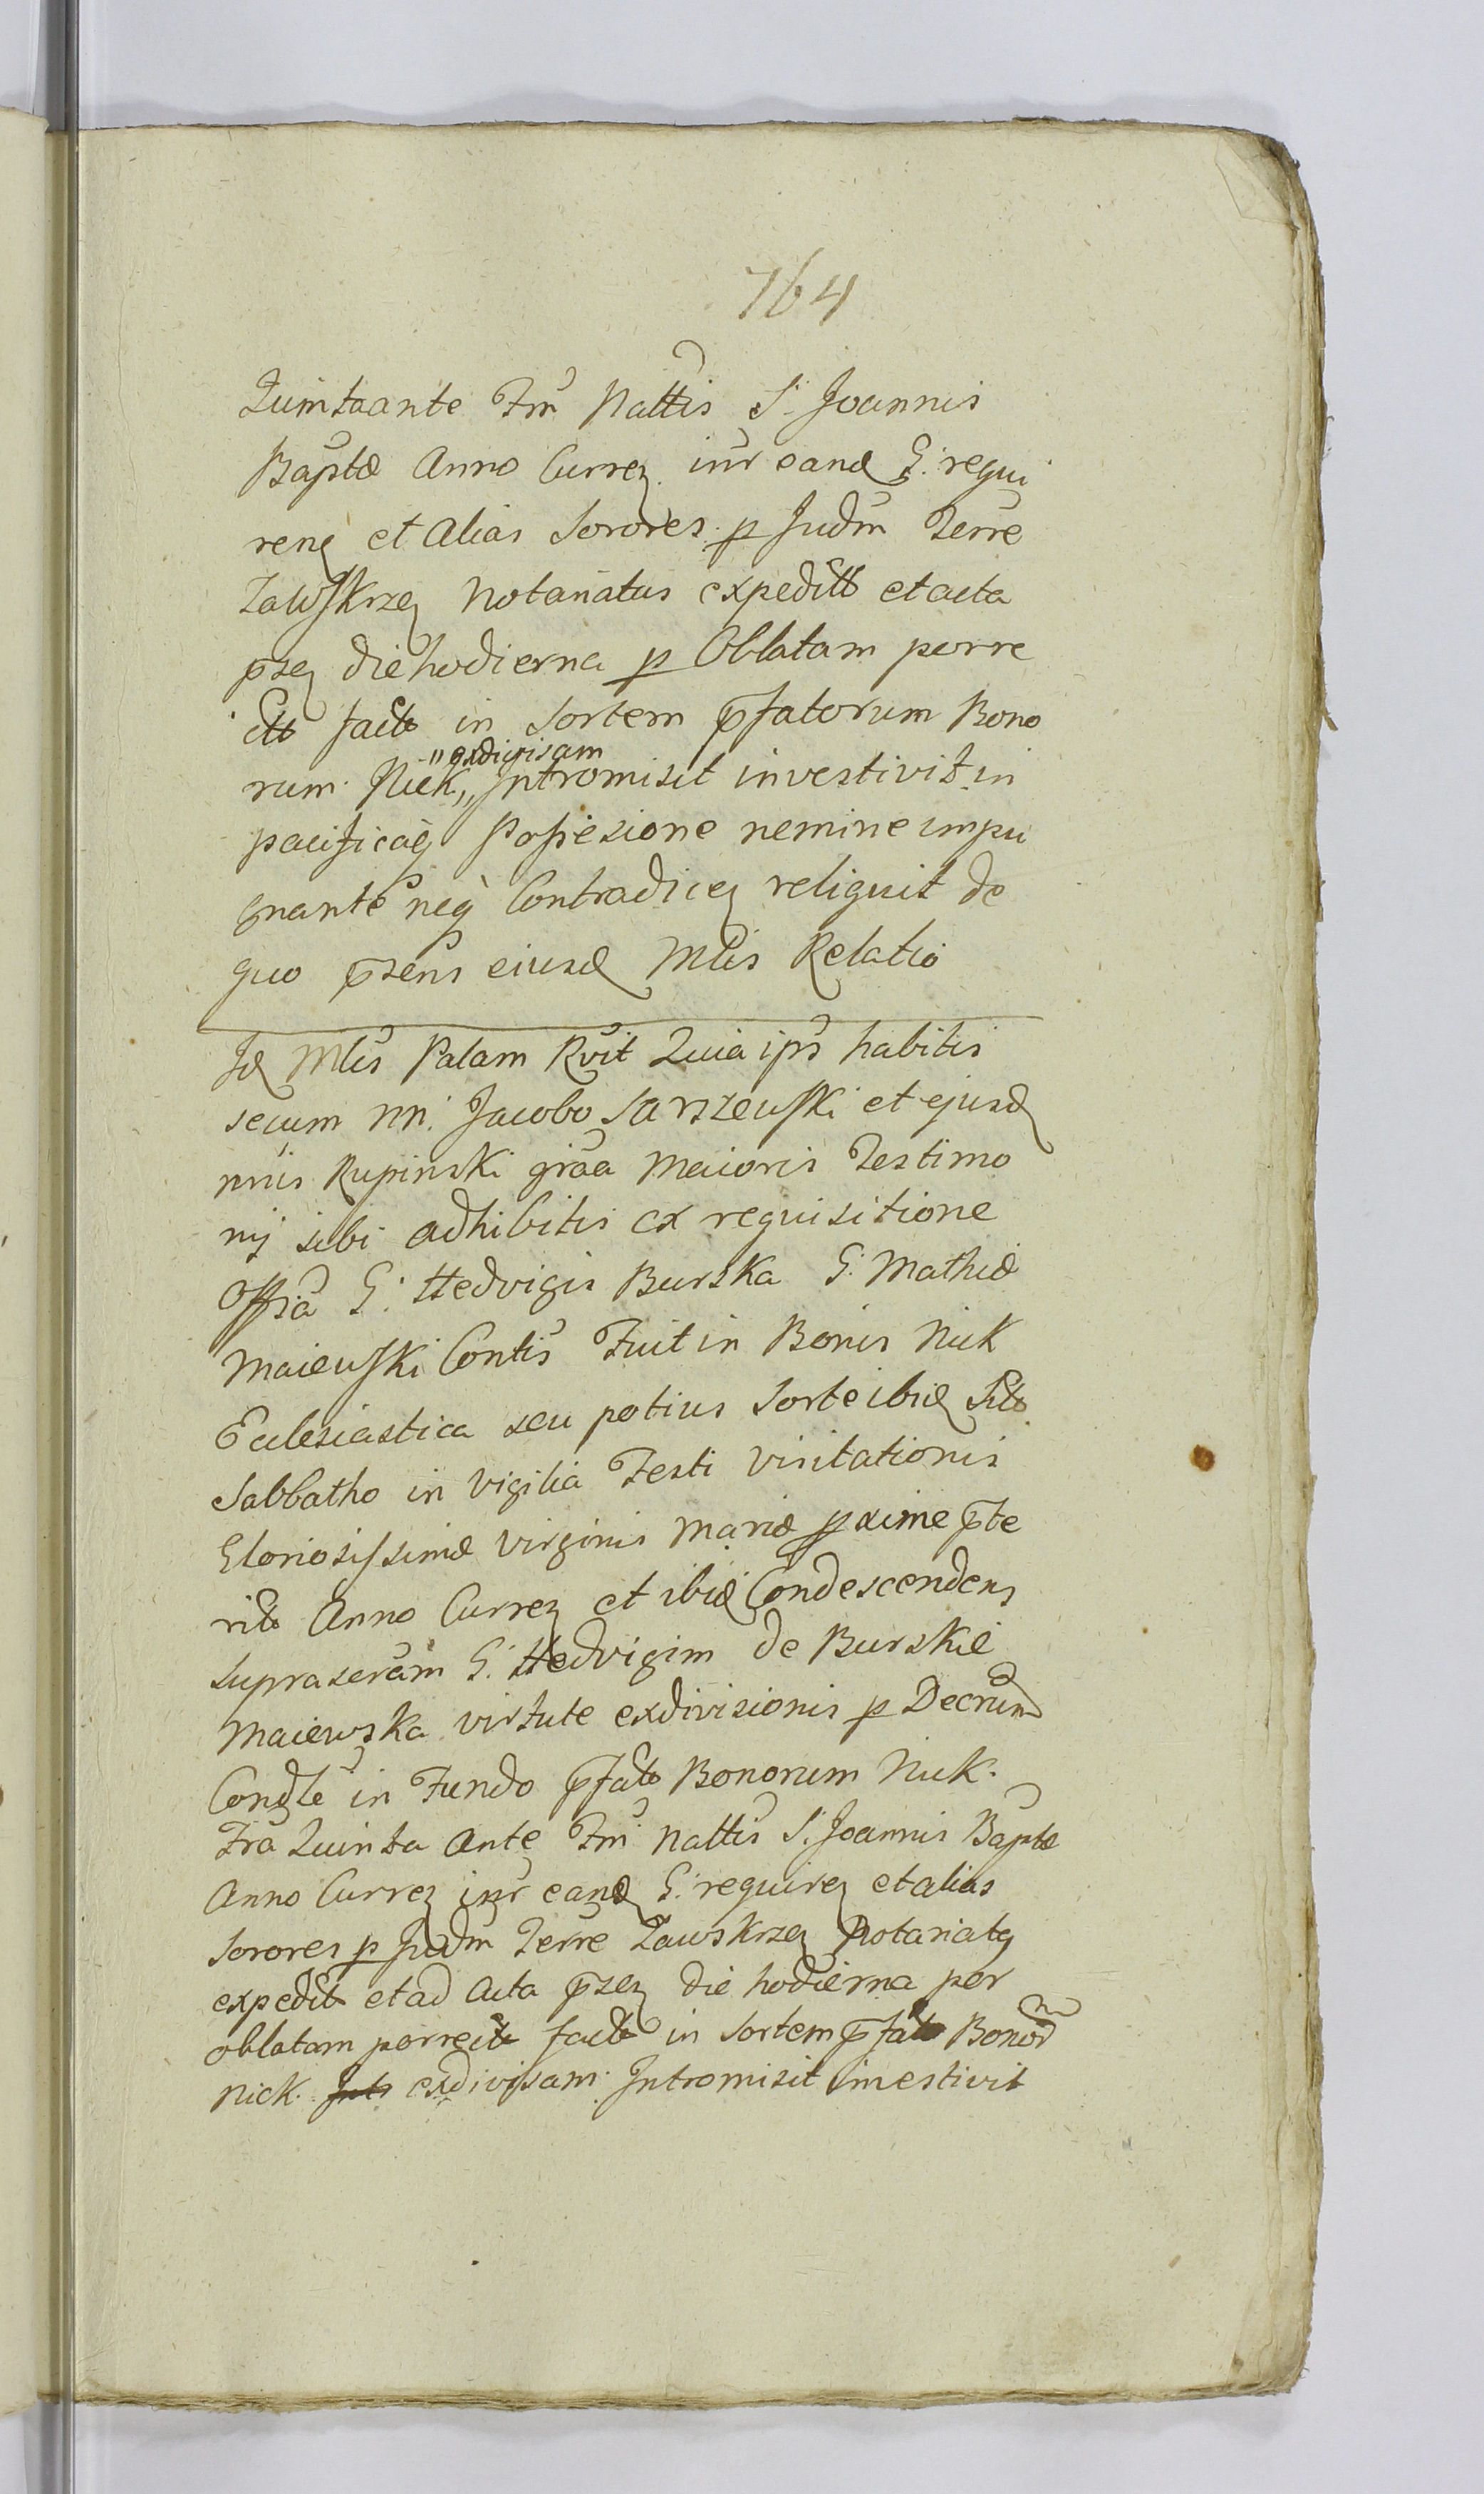 764
Quinta ante Fm̃ Nattis S. Joannis
Baptæ Anno Curreɳ. intr eand G. requi
renɳ et Alias Sorores p Judm̃ Terre
Zawskrzeɳ Notariatus expeditt et acta
p̃seɳ die hodierna p Oblatam porre
ctt factt in Sortem p̃fatorum Bono
rum Nick „ exdivisam „ Intromisit investivit in
pacificaq̃ Possesione nemine impu
gnante neq̃ Contradiceɳ reliquit de
quo p̃sens eiusd Mlis Relatio
Id Mlis Palam Rvit Quia ips̃ habitis
secum nn. Jacobo Sarszewski et ejusd
nnis Rupinski grãa maioris Testimo
nij sibi adhibitis ex requisitione
Offsã G. Hedvigis Burska G. Mathiæ
Maiewski Contis̃ Fuit in Bonis Nick
Eclesiastica seu potius Sorte ibid Sitt
Sabbatho in Vigilia Festi Visitationis
Gloriosissimæ Virginis Mariæ pxime p̃te
ritt Anno Curreɳ et ibid Condescendens
supraserãm G. Hedvigim de Burskie
Maiewska virtute exdivisionis p Decrum̃
Condle in Fundo p̃fatt Bonorum Nick.
Fra Quinta Ante Fm̃ Nattis S. Joannis Baptæ
Anno Curreɳ intr eand G. requireɳ et alias
Sorores p Judm̃ Terre Zawskrzeɳ Notariatɋ
expeditt et ad Acta p̃seɳ die hodierna per
oblatam porrectt factt in Sortem p̃fatt Bonor̃
Nick. Intr exdivisam. Intromisit investivit